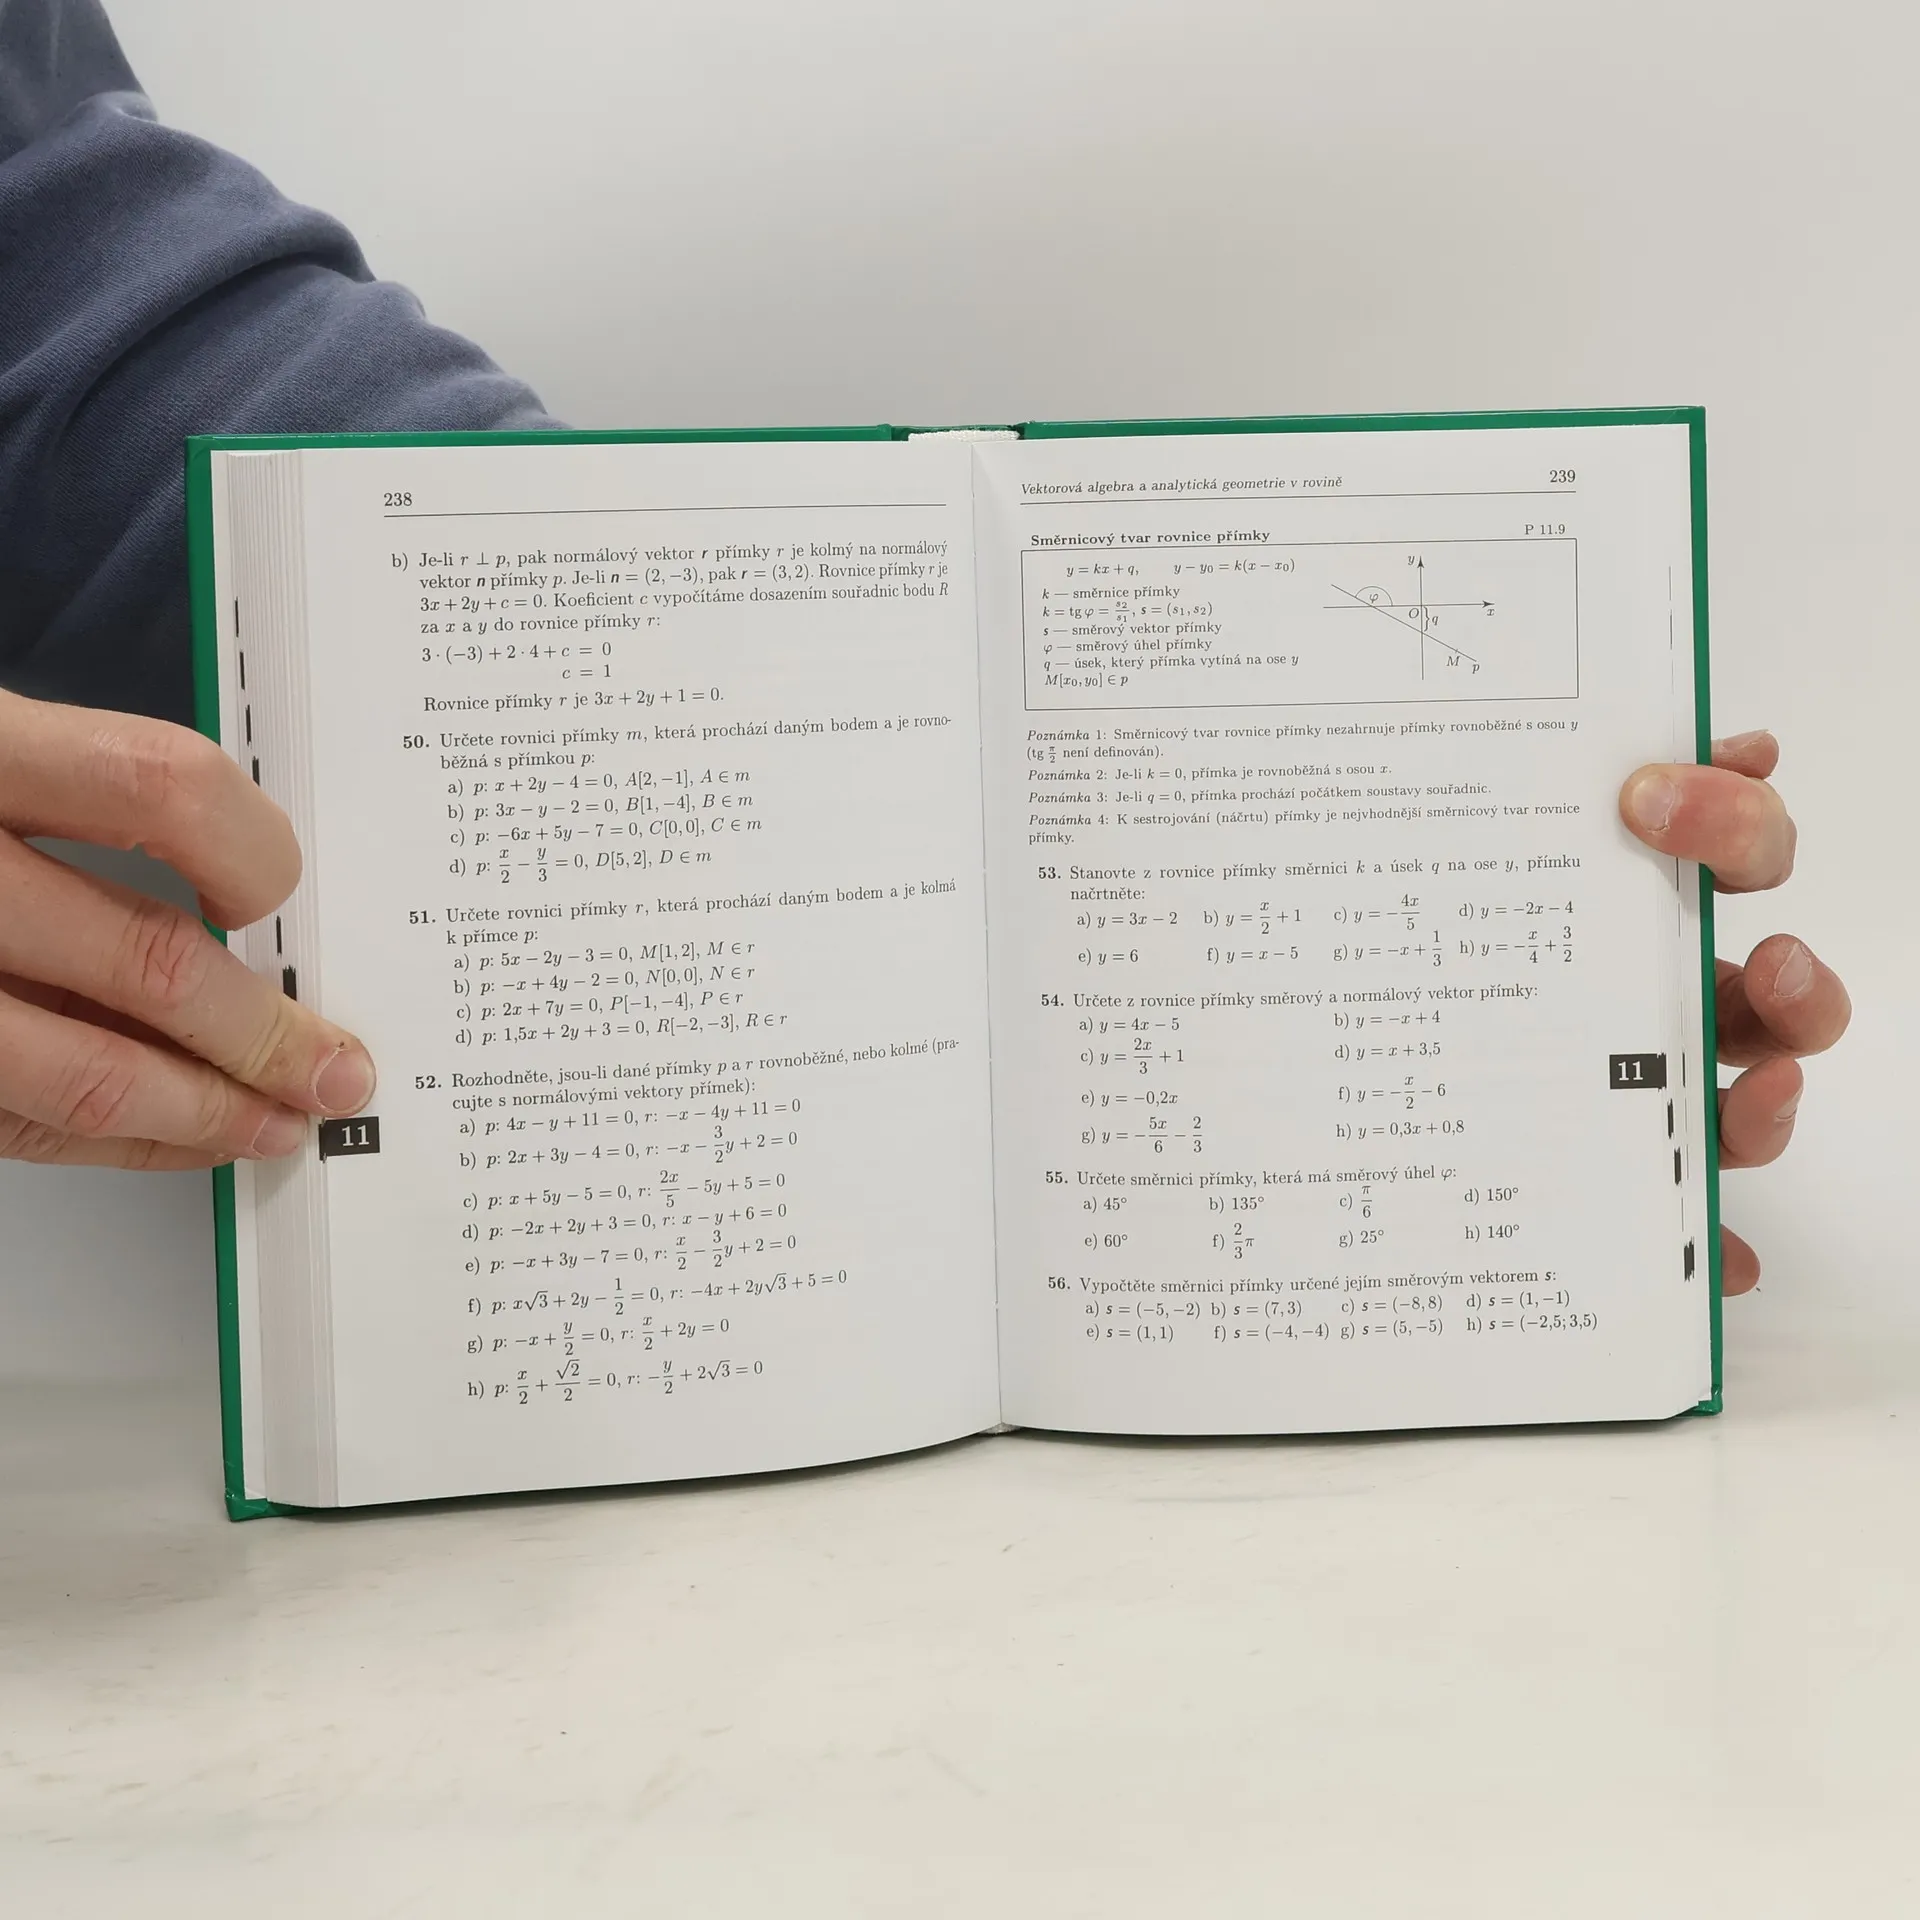 238
b) Je-li r ⊥ p, pak normálový vektor r přímky r je kolmý na normálový
vektor n přímky p. Je-li n = (2, −3), pak r = (3, 2). Rovnice přímky r je
3x + 2y + c = 0. Koeficient c vypočítáme dosazením souřadnic bodu R
za x a y do rovnice přímky r:
3 · (−3) + 2 · 4 + c = 0
c = 1
Rovnice přímky r je 3x + 2y + 1 = 0.
50. Určete rovnici přímky m, která prochází daným bodem a je rovno-
běžná s přímkou p:
a) p: x + 2y − 4 = 0, A[2, −1], A ∈ m
b) p: 3x − y − 2 = 0, B[1, −4], B ∈ m
c) p: −6x + 5y − 7 = 0, C[0, 0], C ∈ m
d) p: x/2 − y/3 = 0, D[5, 2], D ∈ m
51. Určete rovnici přímky r, která prochází daným bodem a je kolmá
k přímce p:
a) p: 5x − 2y − 3 = 0, M[1, 2], M ∈ r
b) p: −x + 4y − 2 = 0, N[0, 0], N ∈ r
c) p: 2x + 7y = 0, P[−1, −4], P ∈ r
d) p: 1,5x + 2y + 3 = 0, R[−2, −3], R ∈ r
52. Rozhodněte, jsou-li dané přímky p a r rovnoběžné, nebo kolmé (pra-
cujte s normálovými vektory přímek):
a) p: 4x − y + 11 = 0, r: −x − 4y + 11 = 0
b) p: 2x + 3y − 4 = 0, r: −x − 3/2y + 2 = 0
c) p: x + 5y − 5 = 0, r: 2x/5 − 5y + 5 = 0
d) p: −2x + 2y + 3 = 0, r: x − y + 6 = 0
e) p: −x + 3y − 7 = 0, r: x/2 − 3/2y + 2 = 0
f) p: x√3 + 2y − 1/2 = 0, r: −4x + 2y√3 + 5 = 0
g) p: −x + y/2 = 0, r: x/2 + 2y = 0
h) p: x/2 + √2/2 = 0, r: −y/2 + 2√3 = 0
11
Vektorová algebra a analytická geometrie v rovině 239
Směrnicový tvar rovnice přímky P 11.9
y = kx + q, y − y₀ = k(x − x₀)
k — směrnice přímky
k = tg φ = s₂/s₁, s = (s₁, s₂)
s — směrový vektor přímky
φ — směrový úhel přímky
q — úsek, který přímka vytíná na ose y
M[x₀, y₀] ∈ p
y
φ
O
q
x
M
p
Poznámka 1: Směrnicový tvar rovnice přímky nezahrnuje přímky rovnoběžné s osou y
(tg π/2 není definován).
Poznámka 2: Je-li k = 0, přímka je rovnoběžná s osou x.
Poznámka 3: Je-li q = 0, přímka prochází počátkem soustavy souřadnic.
Poznámka 4: K sestrojování (náčrtu) přímky je nejvhodnější směrnicový tvar rovnice
přímky.
53. Stanovte z rovnice přímky směrnici k a úsek q na ose y, přímku
načrtněte:
a) y = 3x − 2 b) y = x/2 + 1 c) y = −4x/5 d) y = −2x − 4
e) y = 6 f) y = x − 5 g) y = −x + 1/3 h) y = −x/4 + 3/2
54. Určete z rovnice přímky směrový a normálový vektor přímky:
a) y = 4x − 5 b) y = −x + 4
c) y = 2x/3 + 1 d) y = x + 3,5
e) y = −0,2x f) y = −x/2 − 6
g) y = −5x/6 − 2/3 h) y = 0,3x + 0,8
55. Určete směrnici přímky, která má směrový úhel φ:
a) 45° b) 135° c) π/6 d) 150°
e) 60° f) 2/3π g) 25° h) 140°
56. Vypočtěte směrnici přímky určené jejím směrovým vektorem s:
a) s = (−5, −2) b) s = (7, 3) c) s = (−8, 8) d) s = (1, −1)
e) s = (1, 1) f) s = (−4, −4) g) s = (5, −5) h) s = (−2,5; 3,5)
11